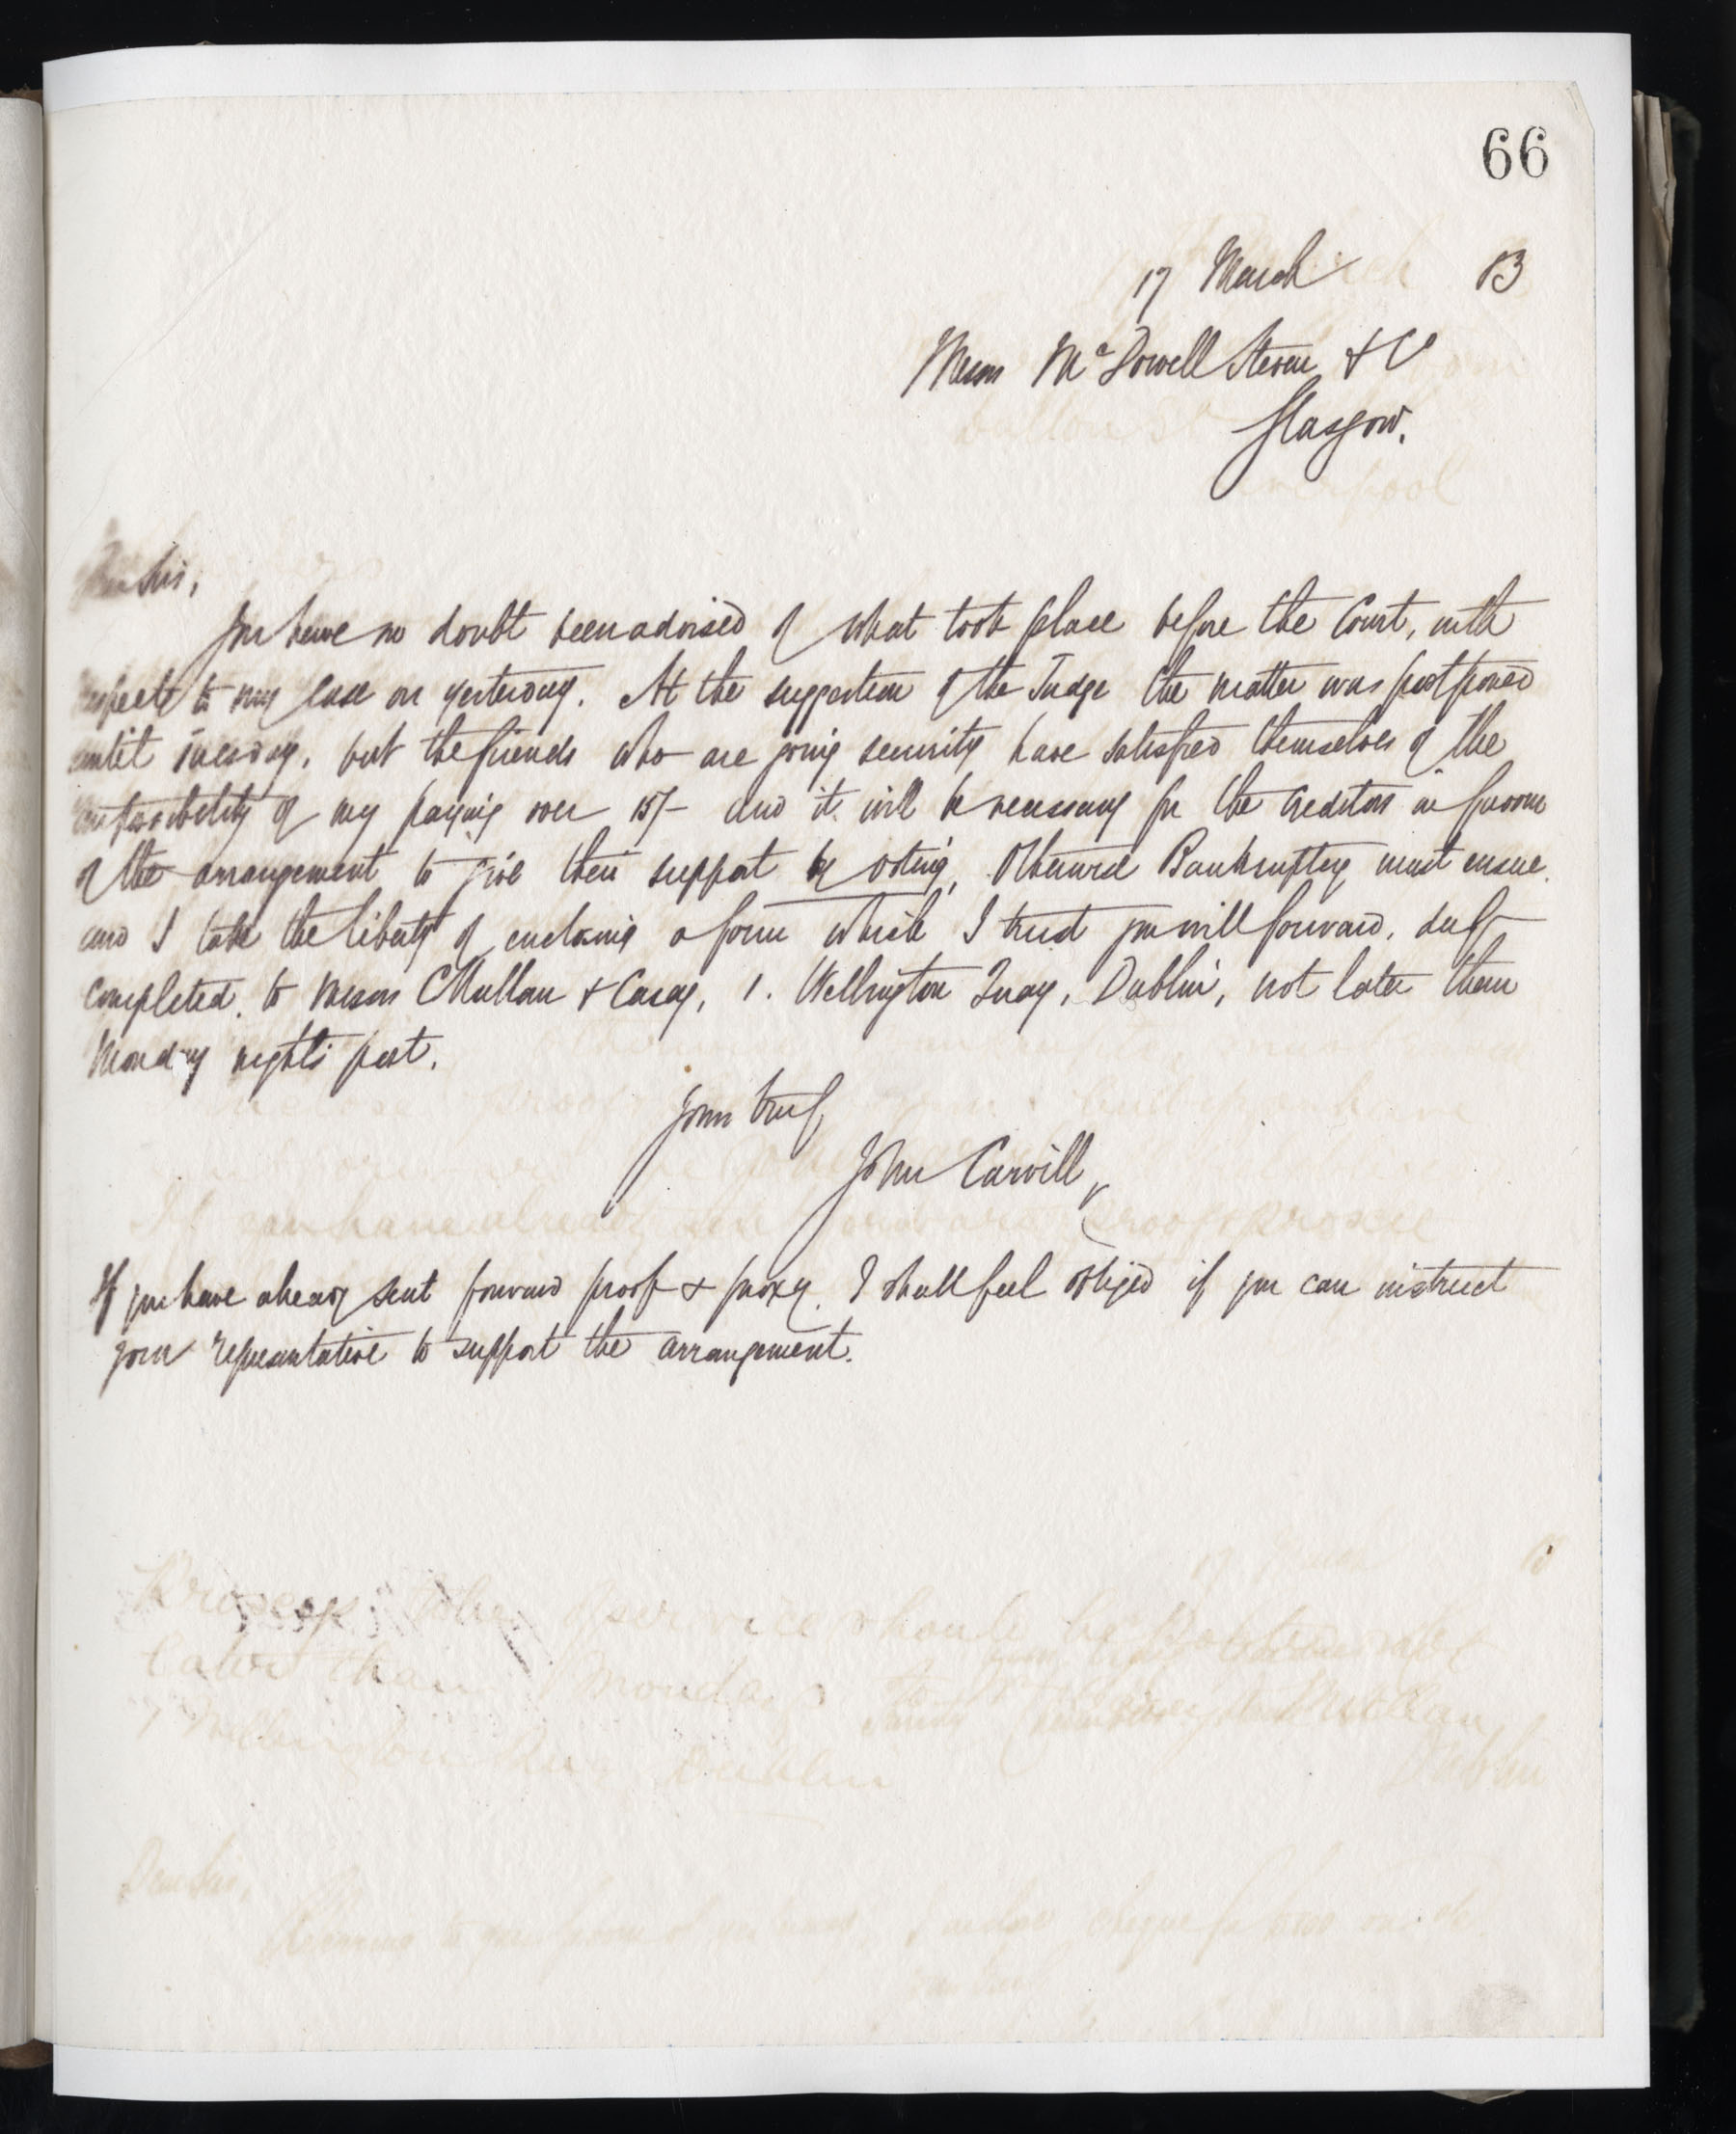 66
17 March 83
Messrs McDowell Steven & Co
Glasgow.
Dear Sirs,
You have no doubt been advised of what took place before the Court, with
respect to my case on yesterday. At the suggestion of the Judge the matter was postponed
until Tuesday, but the friends who are going security have satisfied themselves of the
impossibility of my paying over 15/- and it will be necessary for the creditors in favour
of the arrangement to give their support by voting, Otherwise Bankruptcy must ensue.
and I take the liberty of enclosing a form which I trust you will forward, duly
completed, to Messrs & Casey, 1. Wellington Quay, Dublin, not later than
Monday nights post.
Yours truly
John Carvill
If you have already sent forward proof & proxy. I shall feel obliged if you can instruct
your representative to support the arrangement.
later than Monday
Dublin
Dublin
Dear Sirs,